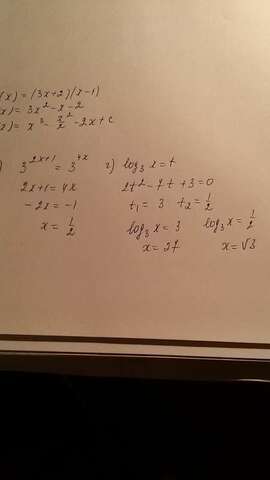 (x) = (3x+2)(x-1)
x) = 3x² - x - 2
x) = x³ - x²/2 - 2x + c
) 3^(2x+1) = 3^(4x)
2x+1 = 4x
-2x = -1
x = 1/2
г) log₃ x = t
2t² - 7t + 3 = 0
t₁ = 3 t₂ = 1/2
log₃ x = 3 log₃ x = 1/2
x = 27 x = √3